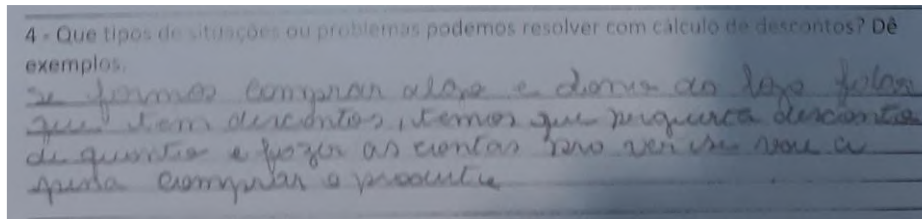 4 - Que tipos de situações ou problemas podemos resolver com cálculo de descontos? Dê
exemplos.
se formos comprar algo e dona da loja falar
que tem descontos, temos que pergunta desconto
de quanto e fazer as contas pro ver se vou a
comprar o produto